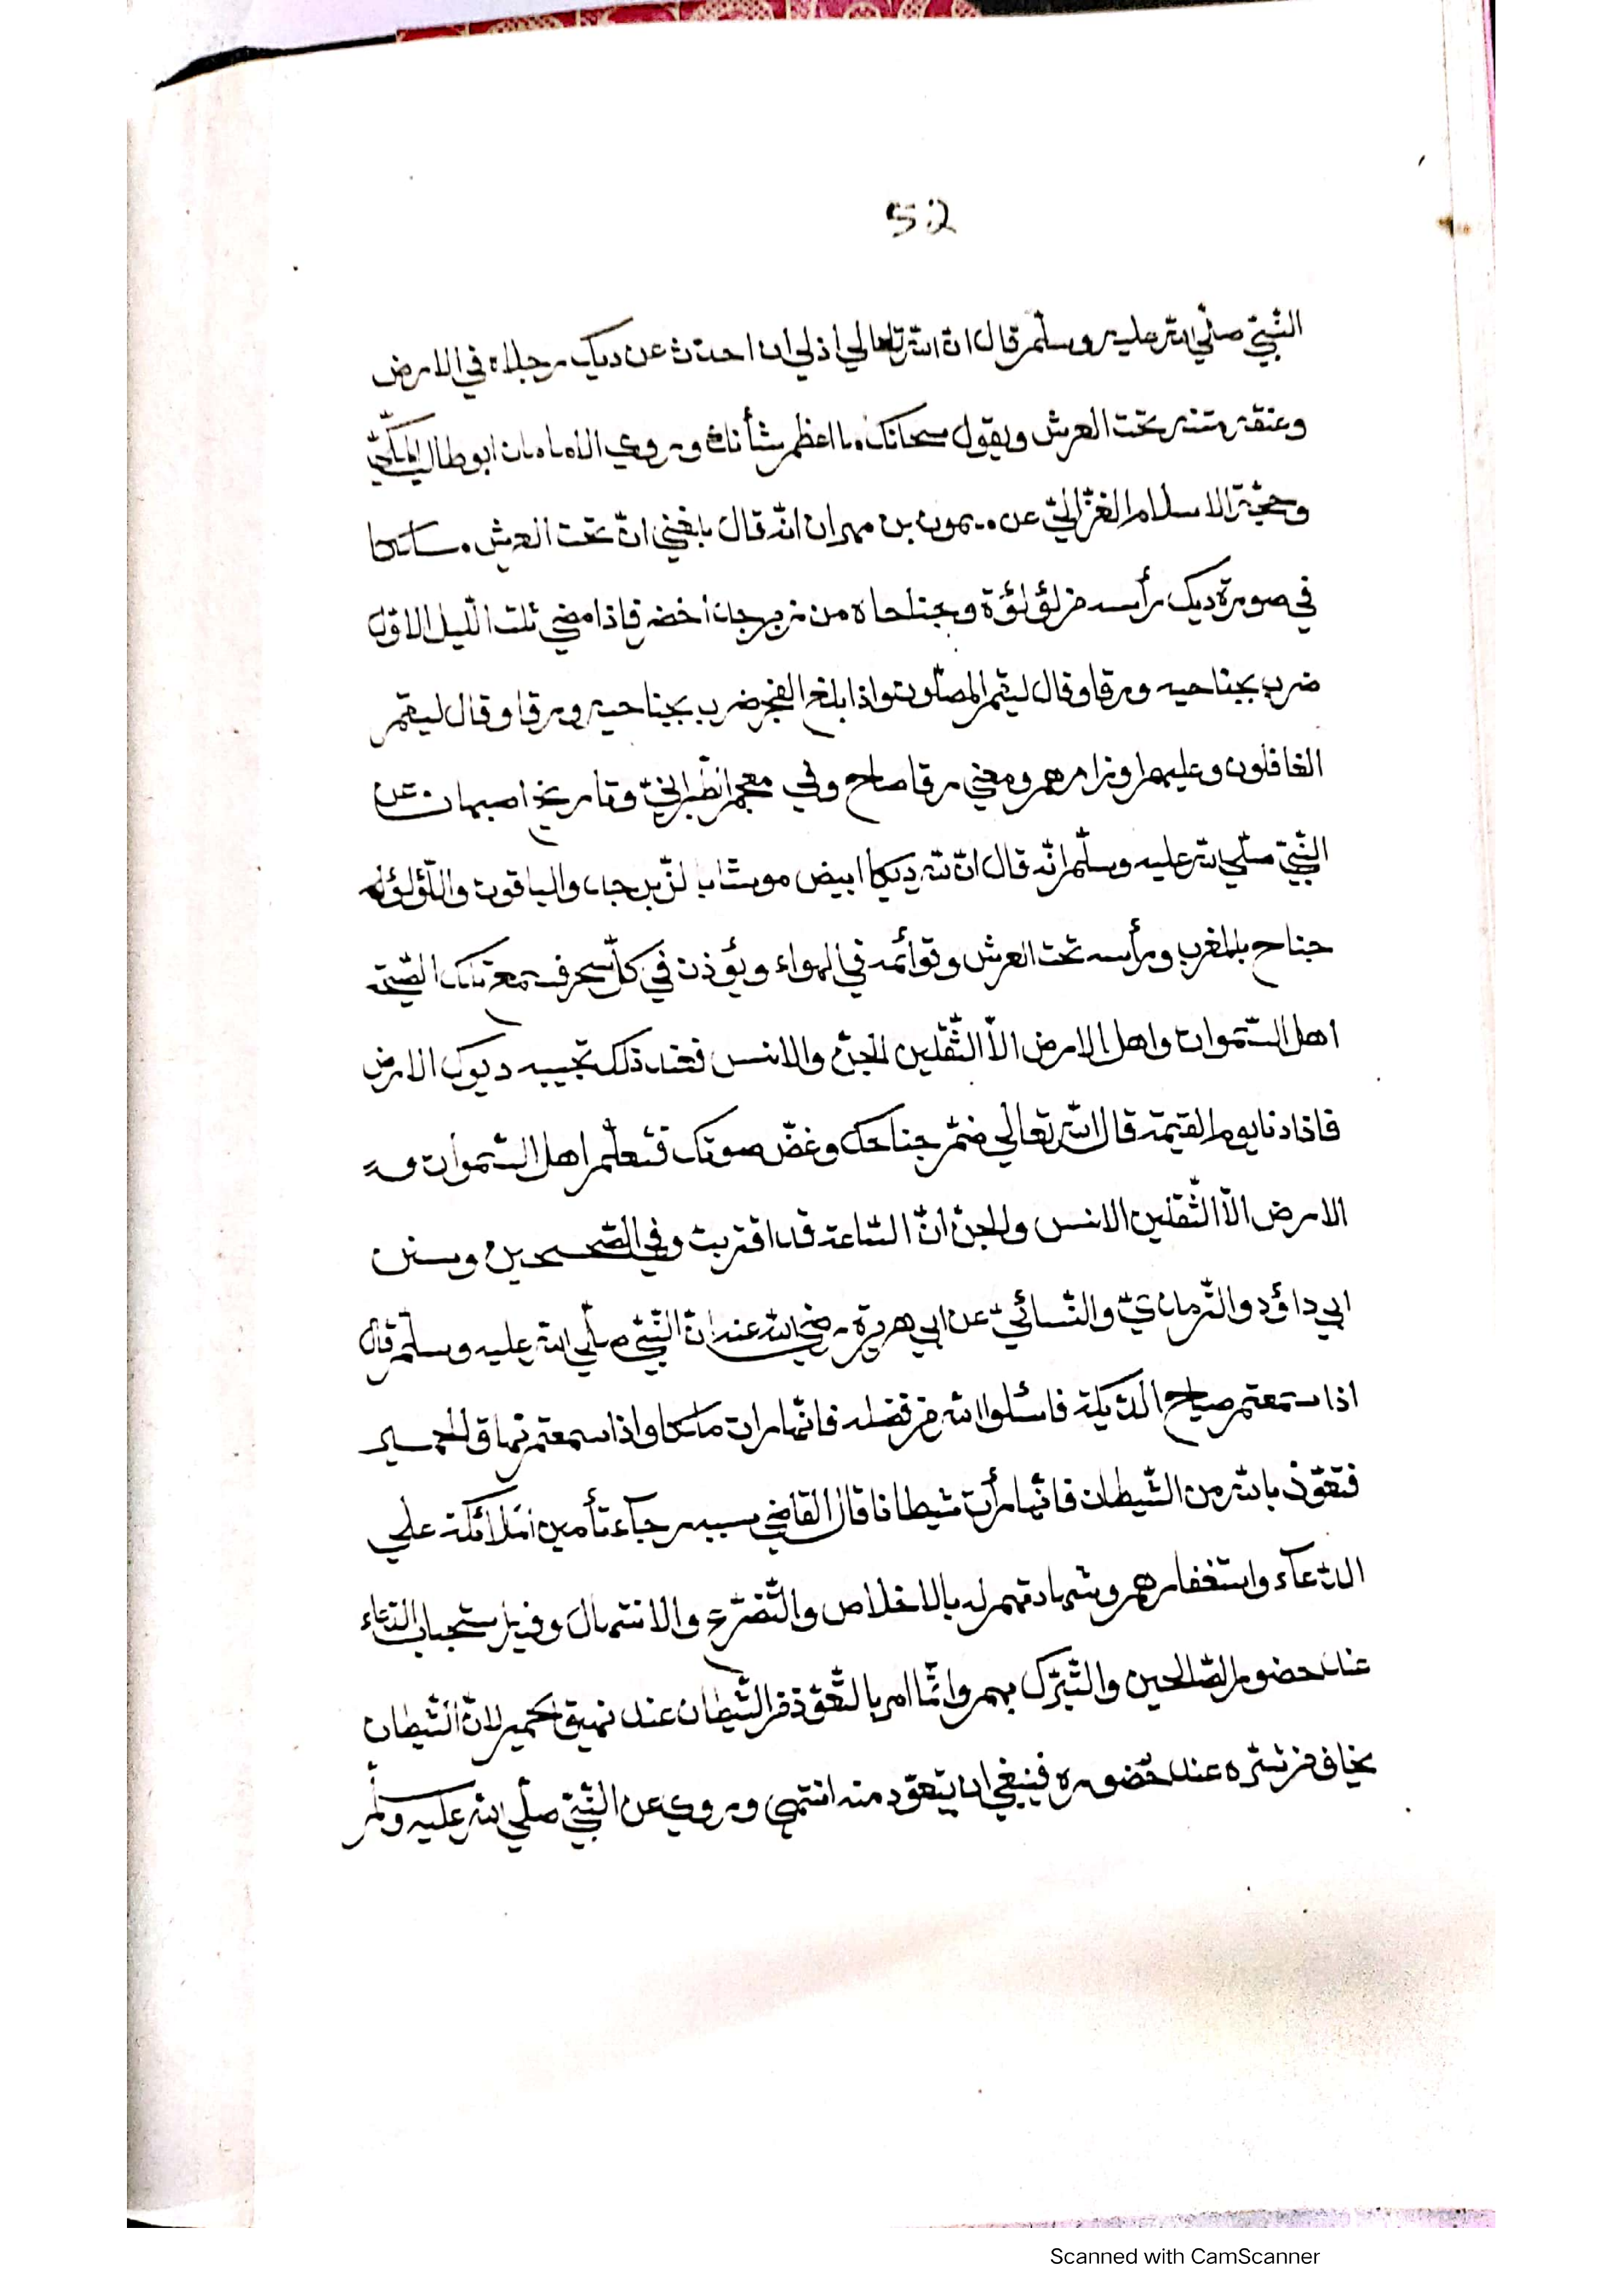 52
النّبيّ صلّي الله عليه وسلّم قال انّ الله تعالي اذ لي ان احدّث عن ديك رجلاه في الارض
وعنقه مثنيه تحت العرش ويقول سبحانك ما اعظم شأنك وروي الامامان ابو طالب المكّيّ
وحجّة الاسلام الغزّاليّ عن ميمون بن مهران انّه قال بلغني انّ تحت العرش ملكا
في صورة ديك رأسه من لؤلؤة وجناحاه من زبرجد أخضر فاذا مضي ثلث اللّيل الاوّل
ضرب بجناحيه ورقا وقال ليقم المصلّون واذا بلغ الفجر ضرب بجناحيه ورقا وقال ليقم
الغافلون وعليهم اوزارهم ومعني رقا صاح وفي معجم الطّبرانيّ وتاريخ اصبهان عن
النّبيّ صلّي الله عليه وسلّم انّه قال انّ لله ديكا ابيض موشّا بالزّبرجد والياقوت واللّؤلؤ له
جناح بالمغرب ورأسه تحت العرش وقوائمه في الهواء ويؤذن في كلّ سحر فيسمعه تلك الصّيحة
اهل السّموات واهل الارض الاّ الثّقلين الجنّ والانس فعند ذلك تجيبه ديوك الارض
فاذا دنا يوم القيمة قال الله تعالي ضمّ جناحك وغضّ صوتك فتعلّم اهل السّموات و
الارض الاّ الثّقلين الانس والجنّ انّ السّاعة قد اقتربت وفي الصّحيحين وسنن
ابي داؤد والتّرمذيّ والنّسائيّ عن ابي هريرة رضي الله عنه انّ النّبيّ صلّي الله عليه وسلّم قال
اذا سمعتم صياح الدّيكة فاسئلوا الله من فضله فانّها رات ملكا واذا سمعتم نهاق الحمير
فتعوّذ بالله من الشّيطان فانّها رأت شيطانا قال القاضي سببه رجآء تأمين الملائكة علي
الدّعآء واستغفارهم وشهادتهم له بالاخلاص والتّضرّع والانتهال وفيه استحباب الدّعاء
عند حضور الصّالحين والتّبرّك بهم وانّما امر بالتّعوّذ من الشّيطان عند نهيق الحمير لانّ الشّيطان
يخاف من شرّه عند حضوره فينبغي ان يتعوّد منه انتهي وروي عن النّبيّ صلّي الله عليه وسلّم
Scanned with CamScanner